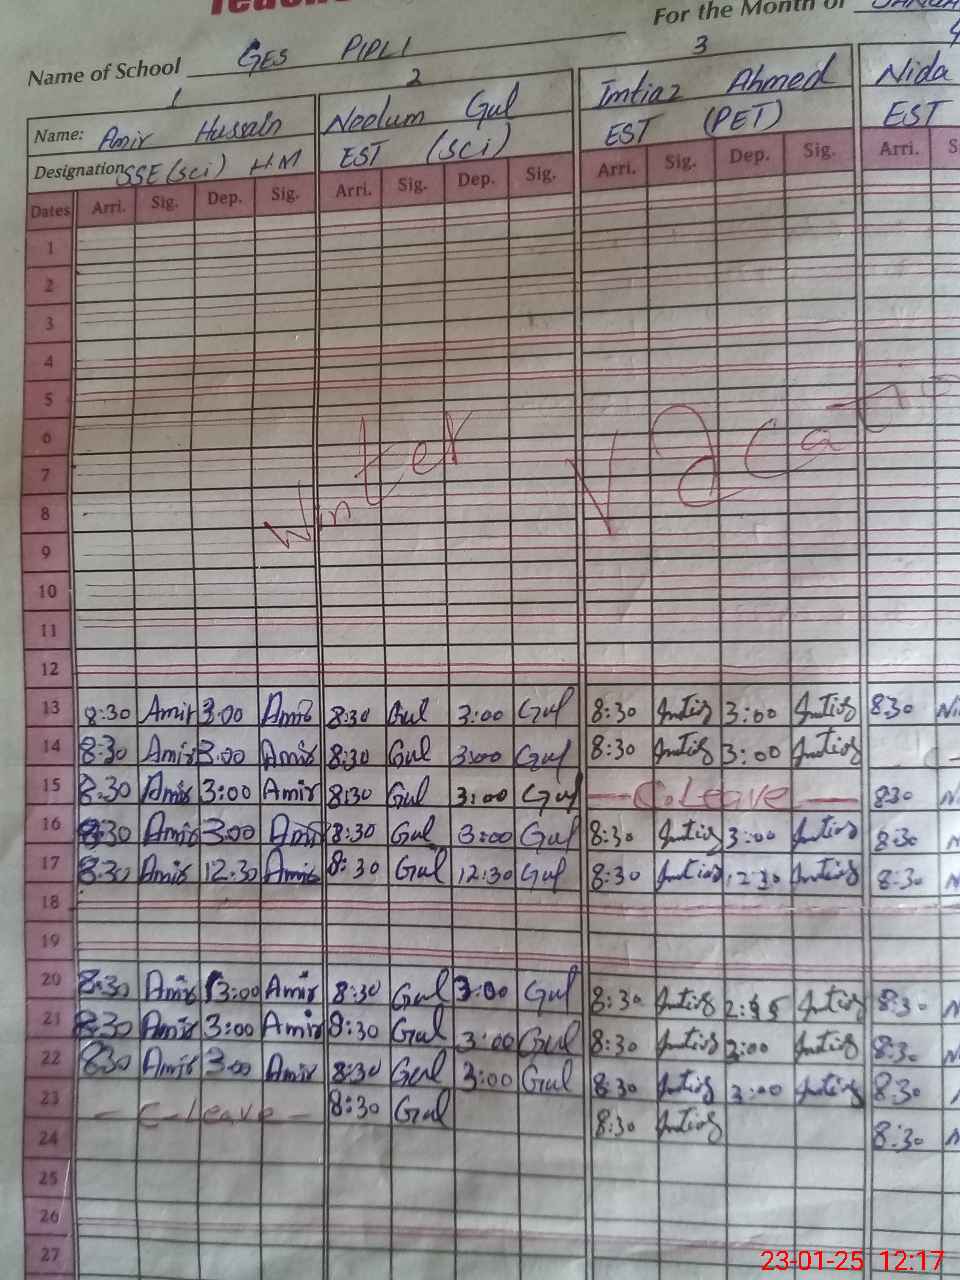 For the Month of
Name of School GES PIPLI
1 2 3 4
Name: Amir Hussain Neelum Gul Imtiaz Ahmed Nida
Designation SSE (sci) H.M EST (sci) EST (PET) EST
Dates Arri. Sig. Dep. Sig. Arri. Sig. Dep. Sig. Arri. Sig. Dep. Sig. Arri.
1
2
3
4
5
6
7
8
9
10
11
12
Winter Vacation
13 8:30 Amir 3:00 Amir 8:30 Gul 3:00 Gul 8:30 Imtiaz 3:00 Imtiaz 8:30
14 8:30 Amir 3:00 Amir 8:30 Gul 3:00 Gul 8:30 Imtiaz 3:00 Imtiaz
15 8:30 Amir 3:00 Amir 8:30 Gul 3:00 Gul — C.Leave — 8:30
16 8:30 Amir 3:00 Amir 8:30 Gul 3:00 Gul 8:30 Imtiaz 3:00 Imtiaz 8:30
17 8:30 Amir 12:30 Amir 8:30 Gul 12:30 Gul 8:30 Imtiaz 12:30 Imtiaz 8:30
18
19
20 8:30 Amir 3:00 Amir 8:30 Gul 3:00 Gul 8:30 Imtiaz Imtiaz 8:30
21 8:30 Amir 3:00 Amir 8:30 Gul 3:00 Gul 8:30 Imtiaz 3:00 Imtiaz 8:30
22 8:30 Amir 3:00 Amir 8:30 Gul 3:00 Gul 8:30 Imtiaz 3:00 Imtiaz 8:30
23 — C-Leave — 8:30 Gul 8:30 Imtiaz 8:30
24
25
26
27
23-01-25 12:17